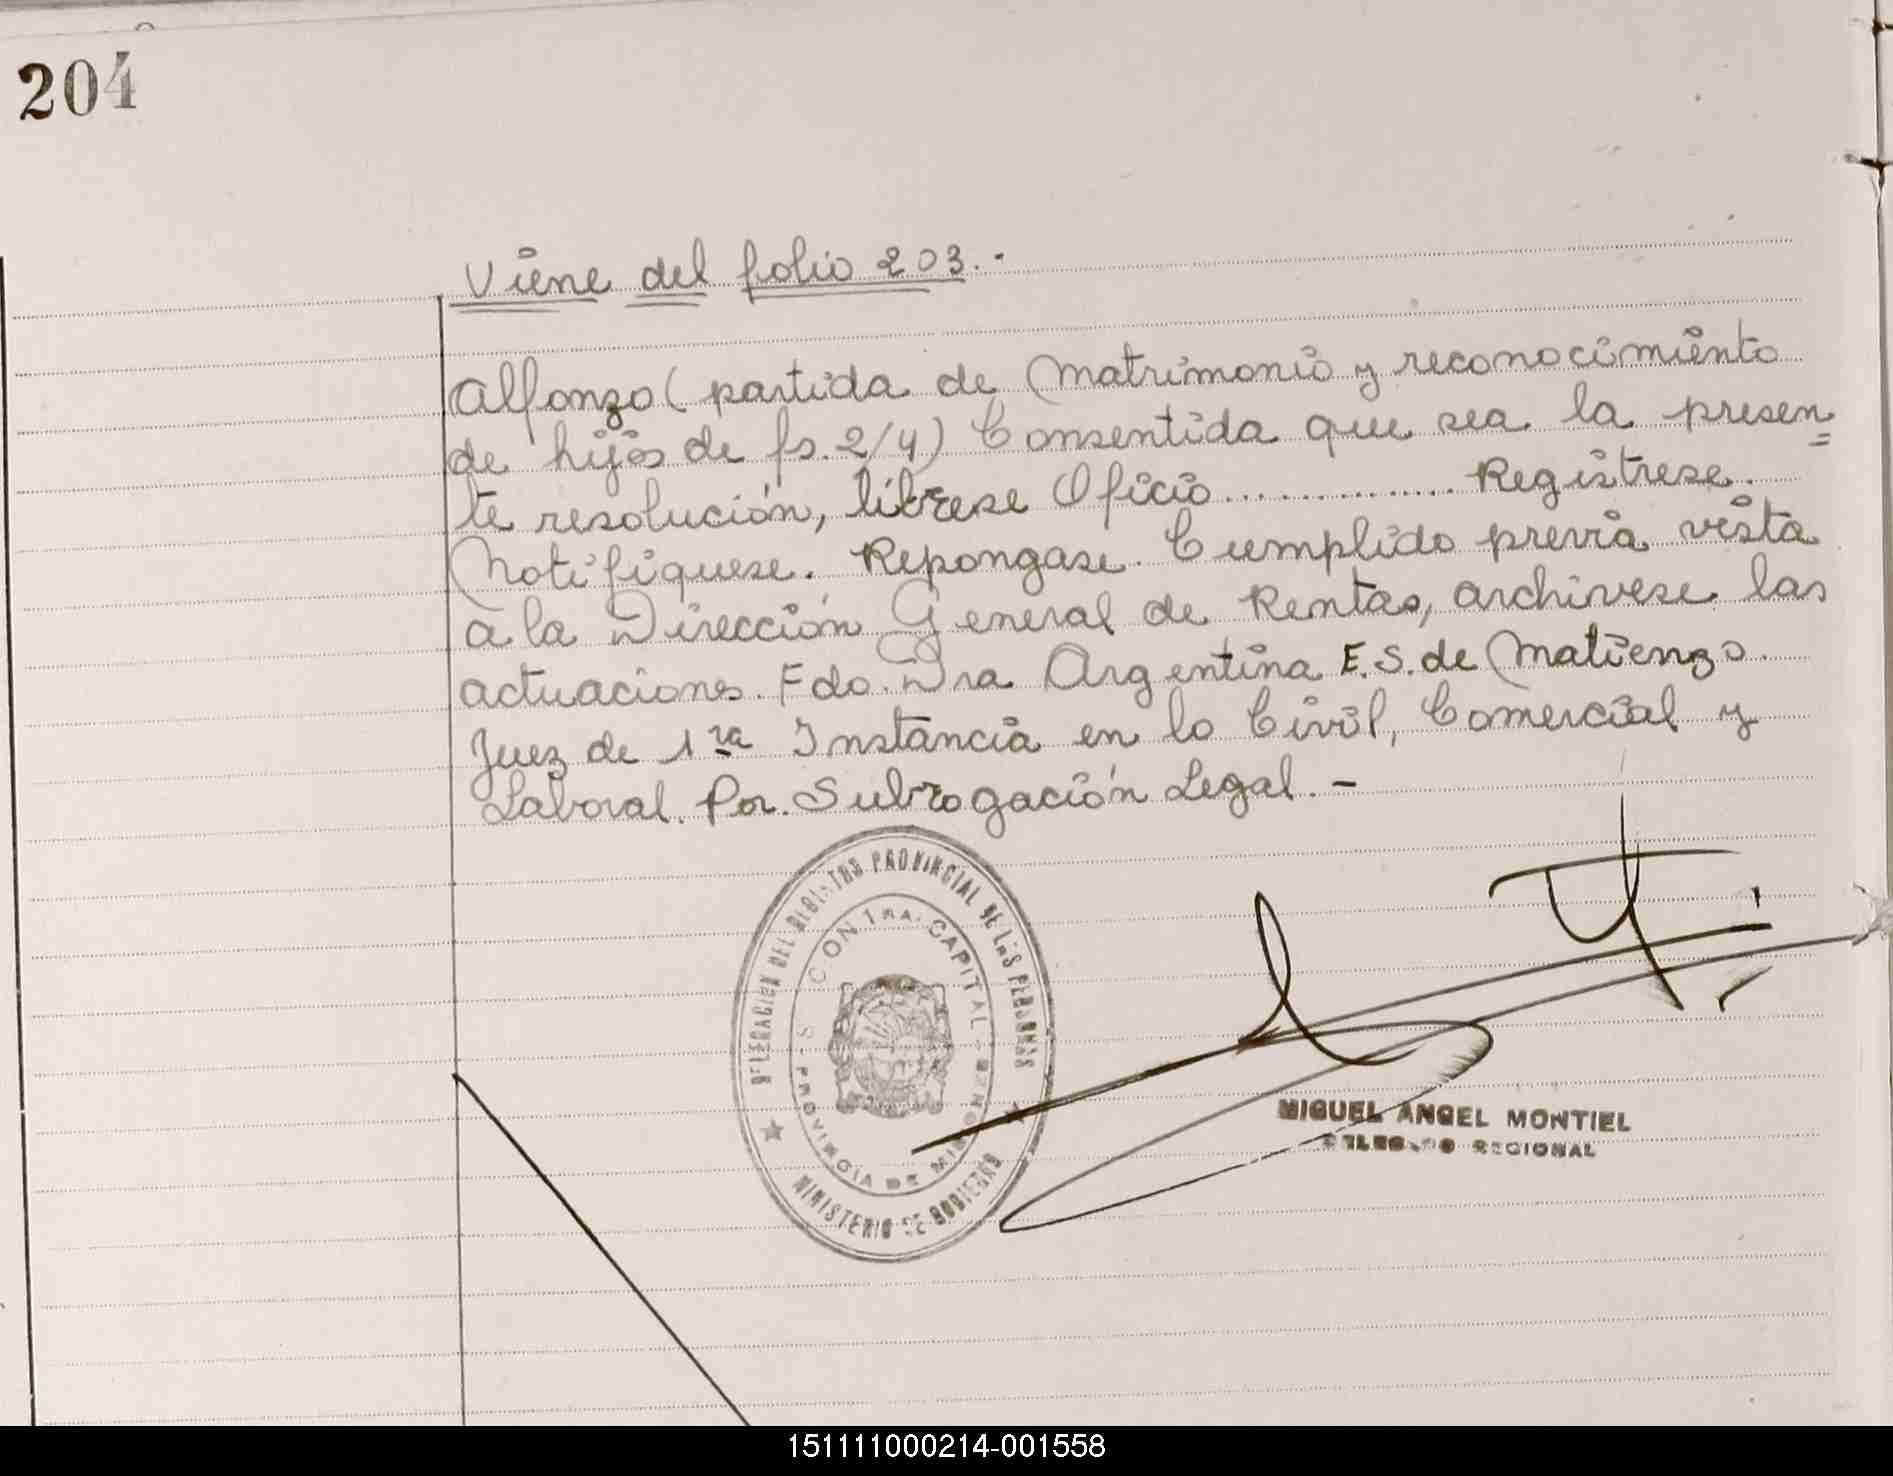 204
Viene del folio 203.-
Alfonzo (partida de Matrimonio y reconocimiento
de hijos de fs. 2/4) Consentida que sea la presen=
te resolución, líbrese Oficio............... Registrese.
Notifiquese. Repongase. Cumplido previa vista
a la Dirección General de Rentas, archivese las
actuaciones. Fdo. Dra Argentina E.S. de Matienzo.
Juez de 1ra Instancia en lo Civil, Comercial y
Laboral. Por. Subrogación Legal.-
DELEGACION DEL REGISTRO PROVINCIAL DE LAS PERSONAS
MINISTERIO DE GOBIERNO
CAPITAL
PROVINCIA DE
MIGUEL ANGEL MONTIEL
DELEGADO REGIONAL
151111000214-001558